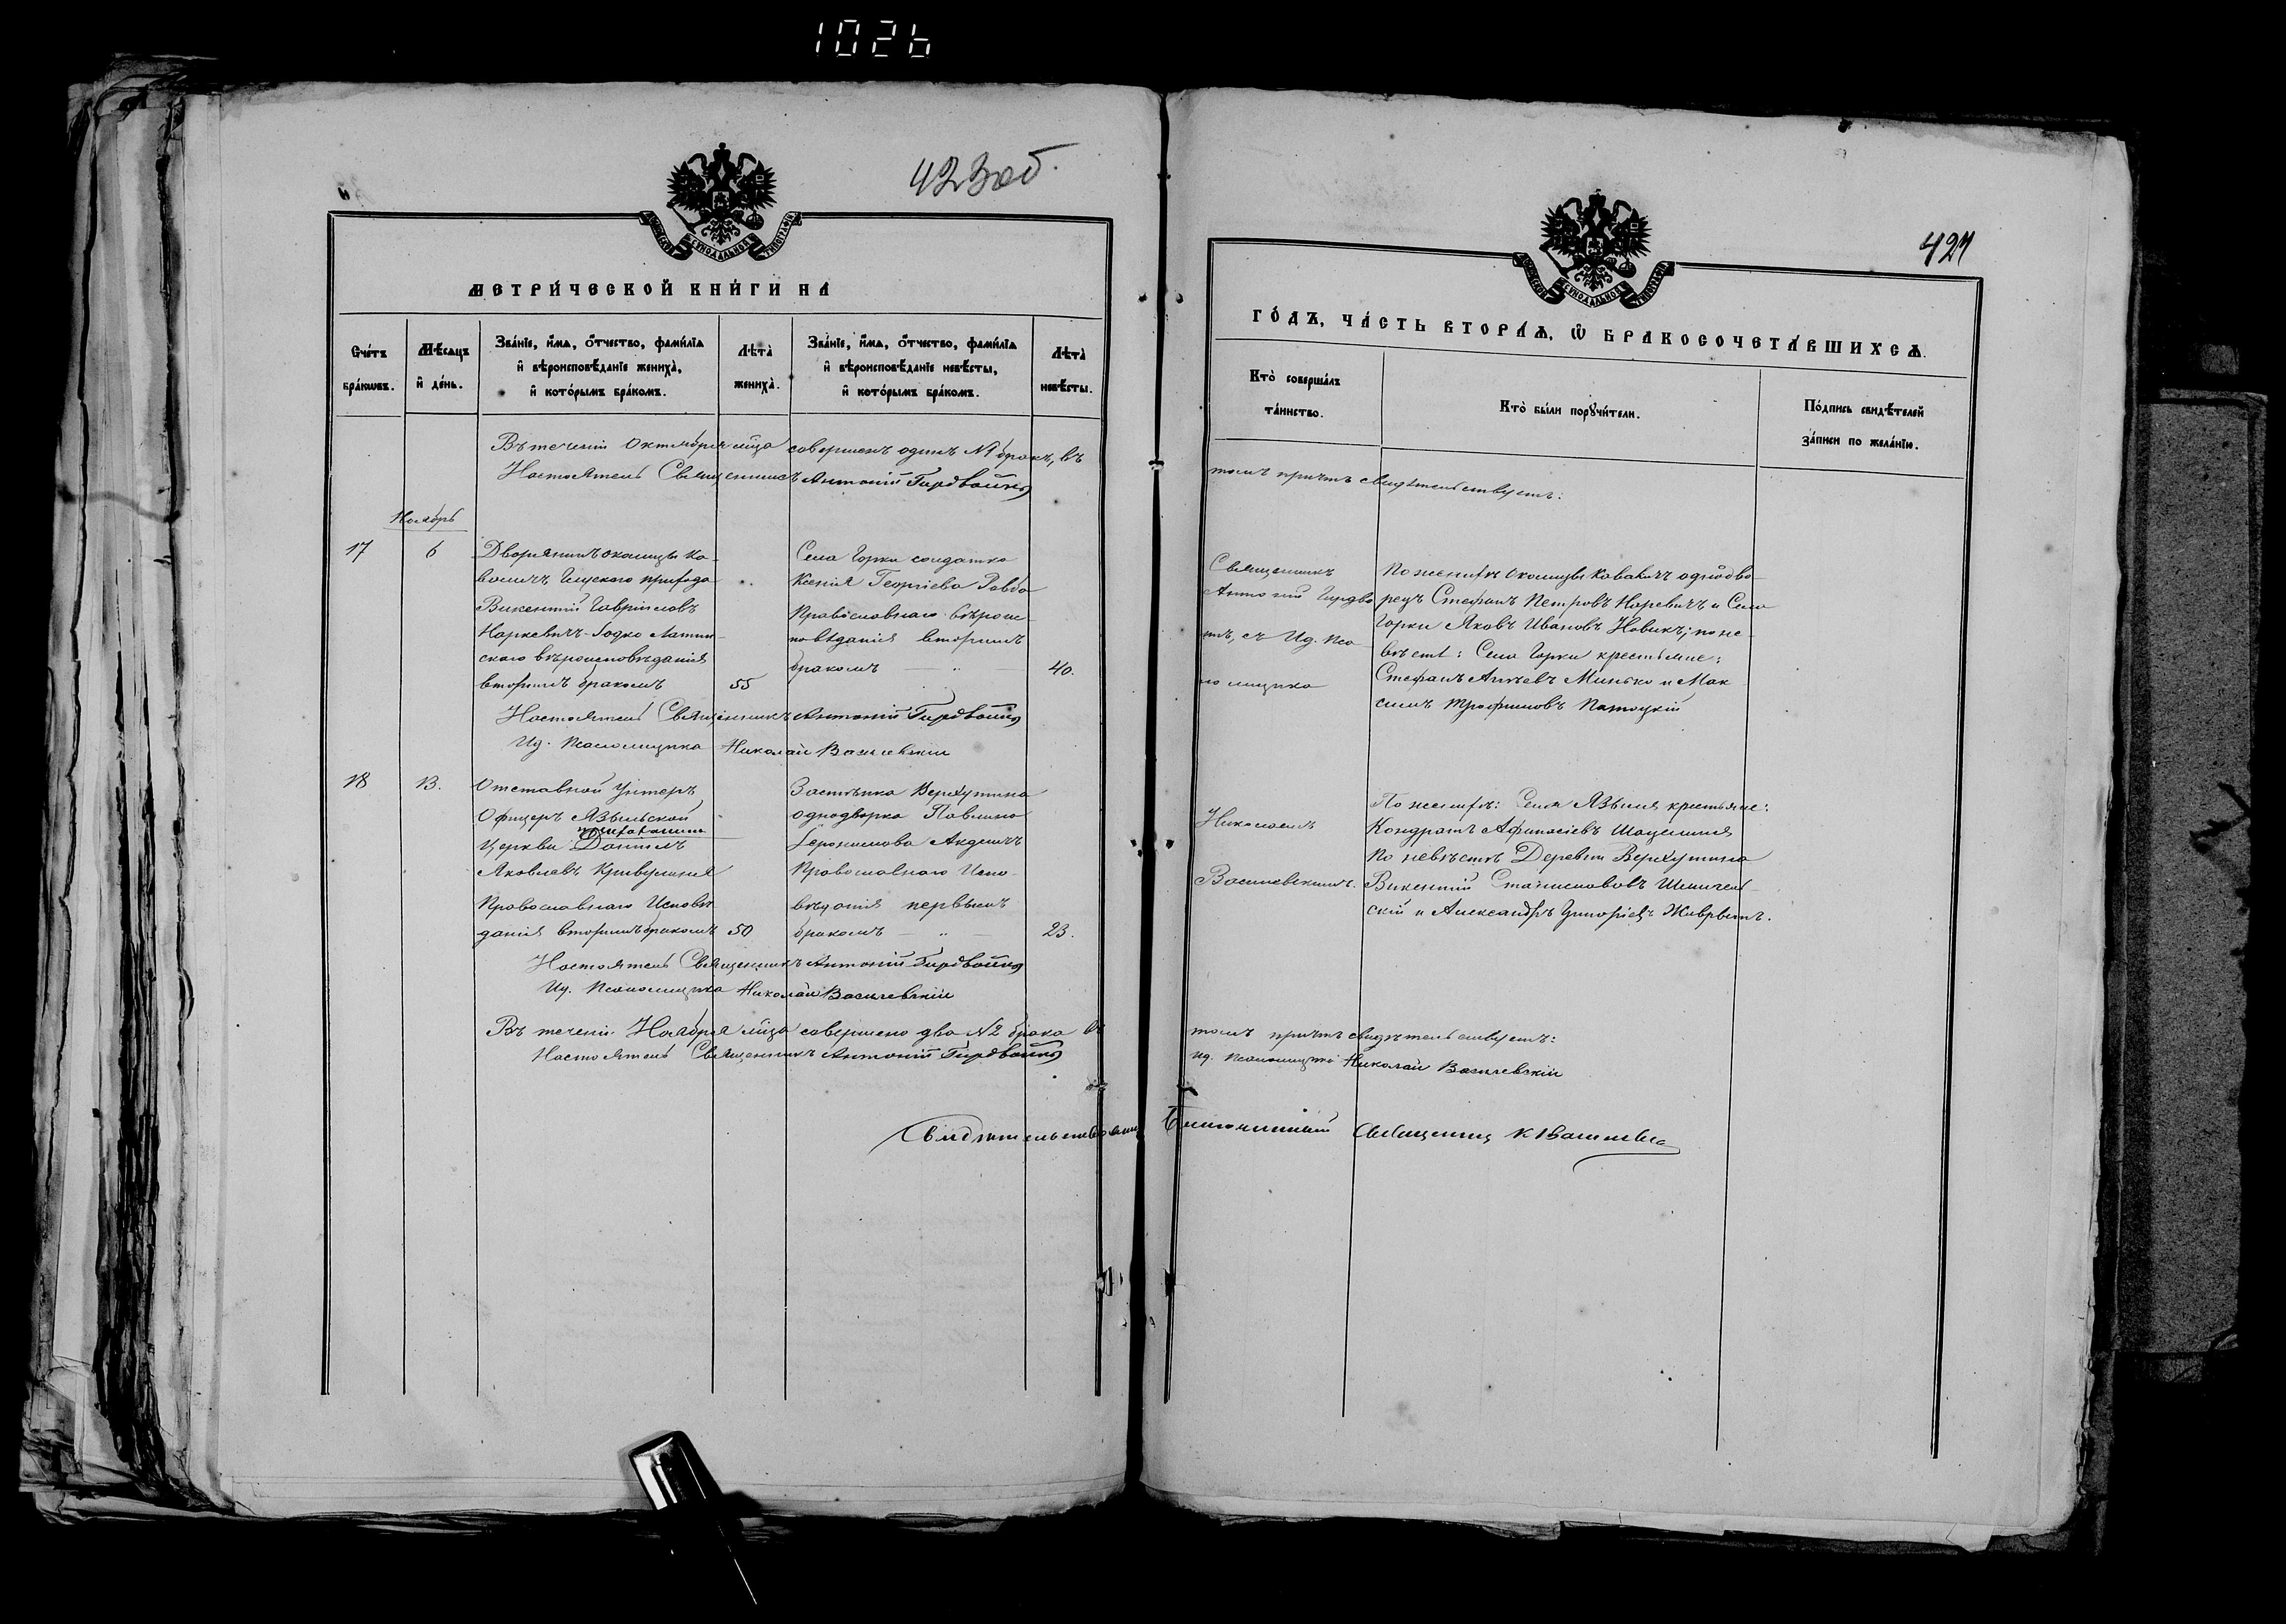 1026
423 об.
МЕТРИ́ЧЕСКОЙ КНИ́ГИ НА
Сче́тъ бра́ковъ.
Мѣ́сяцъ и де́нь.
Зва́нїе, и́мя, о́тчество, фами́лїя и вѣроисповѣ́данїе жениха̀, и кото́рымъ бра́комъ.
Лѣта̀ жениха̀.
Зва́нїе, и́мя, о́тчество, фами́лїя и вѣроисповѣ́данїе невѣ́сты, и кото́рымъ бра́комъ.
Лѣта̀ невѣ́сты.
Въ теченіи Октября мѣца совершенъ одинъ №1 бракъ, въ
Настоятель Священникъ Антоній Гирдвойнъ
Ноябрь
17
6
Дворянинъ околицы Ко-
валичъ Глускаго прихода
Викентій Гавріиловъ
Наркевичъ-Годко Латин-
скаго вѣроисповѣданія
вторымъ бракомъ
55
Села Горки солдатка
Ксенія Георгіева Равбо
Православнаго вѣроис-
повѣданія вторымъ
бракомъ — „ —
40.
Настоятель Священникъ Антоній Гирдвойнъ
Ид. Псаломщика Николай Василевскій
18
13.
Отставной Унтеръ
Офицеръ Язвильской
прихожанинъ
церкви Даніилъ
Яковлевъ Кривуленя
Православнаго Исповѣ-
данія вторымъ бракомъ
50
Застѣнка Верхутина
однодворка Павлина
Іеронимова Акдиичъ
Православнаго Испо-
вѣданія первымъ
бракомъ — „ —
23.
Настоятель Священникъ Антоній Гирдвойнъ
Ид. Псаломщика Николай Василевскій
Въ теченіи Ноября мѣца совершено два №2 брака въ
Настоятель Священникъ Антоній Гирдвойнъ
Свидѣтельствовалъ
424
ГО́ДЪ, ЧА́СТЬ ВТОРА́Я, Ѡ БРАКОСОЧЕТА́ВШИХСЯ.
Кто̀ соверша́лъ та́инство.
Кто̀ бы́ли пору́чители.
По́дпись свидѣ́телей за́писи по жела́нїю.
томъ причтъ свидѣтельствуетъ:
Священникъ
Антоній Гирдво-
инъ, съ Ид. Пса-
ломщика
По женихѣ околицы Ковалич однодво-
рецъ Стефанъ Петровъ Наревичъ и Села
Горки Яковъ Ивановъ Новикъ; по не-
вѣстѣ: Села Горки крестьяне:
Стефанъ Янчевъ Минько и Мак-
симъ Трофимовъ Потоцкій
Николаемъ
Василевскимъ.
По женихѣ: Села Язвиля крестьяне:
Кондратъ Афанасіевъ
По невѣстѣ Деревни Верхутина
Викентій Станиславовъ
скій и Александръ Григоріевъ
томъ причтъ свидѣтельствуетъ:
Ид. Псаломщика Николай Василевскій
Благочинный Священникъ